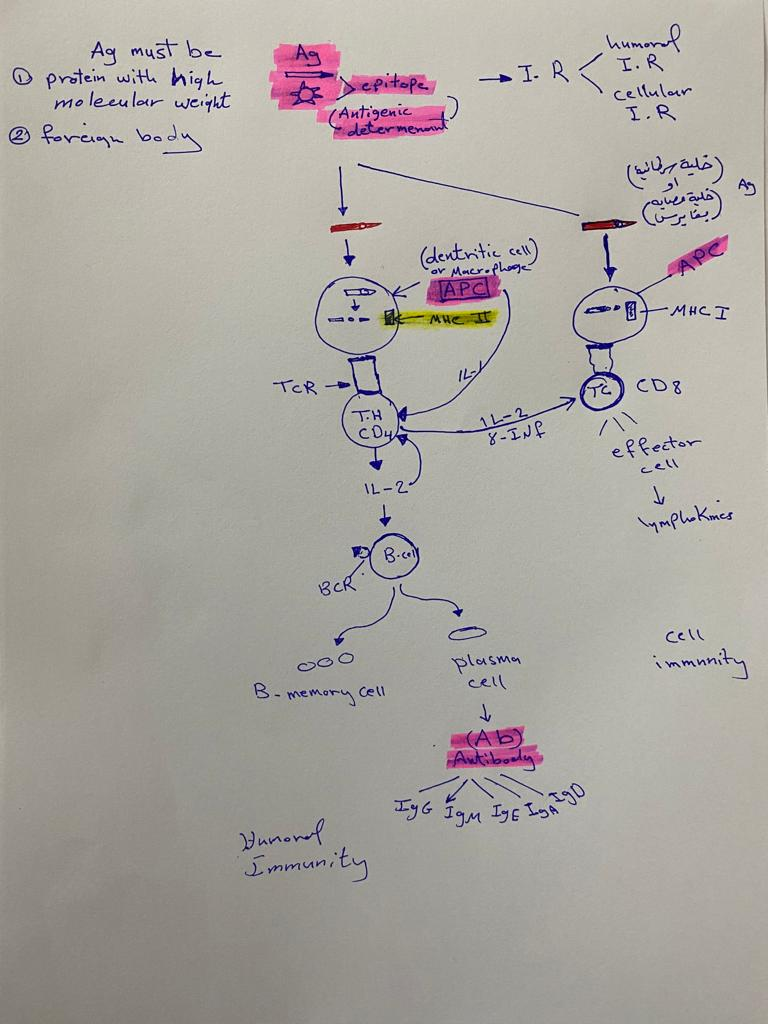 Ag must be
① protein with high
molecular weight
② foreign body
Ag
epitope
(Antigenic
determenant)
I. R
humoral
I. R
cellular
I. R
(خلية سرطانية)
او
(خلية مصابه
بفايرس)
Ag
(dentritic cell)
or Macrophage
APC
MHC II
APC
MHC I
IL-1
TCR
T.H
CD4
IL-2
8-INf
TC
CD8
effector
cell
lymphokines
IL-2
B-cell
BCR
B-memory cell
plasma
cell
(Ab)
Antibody
IgG IgM IgE IgA IgD
cell
immunity
Humoral
Immunity